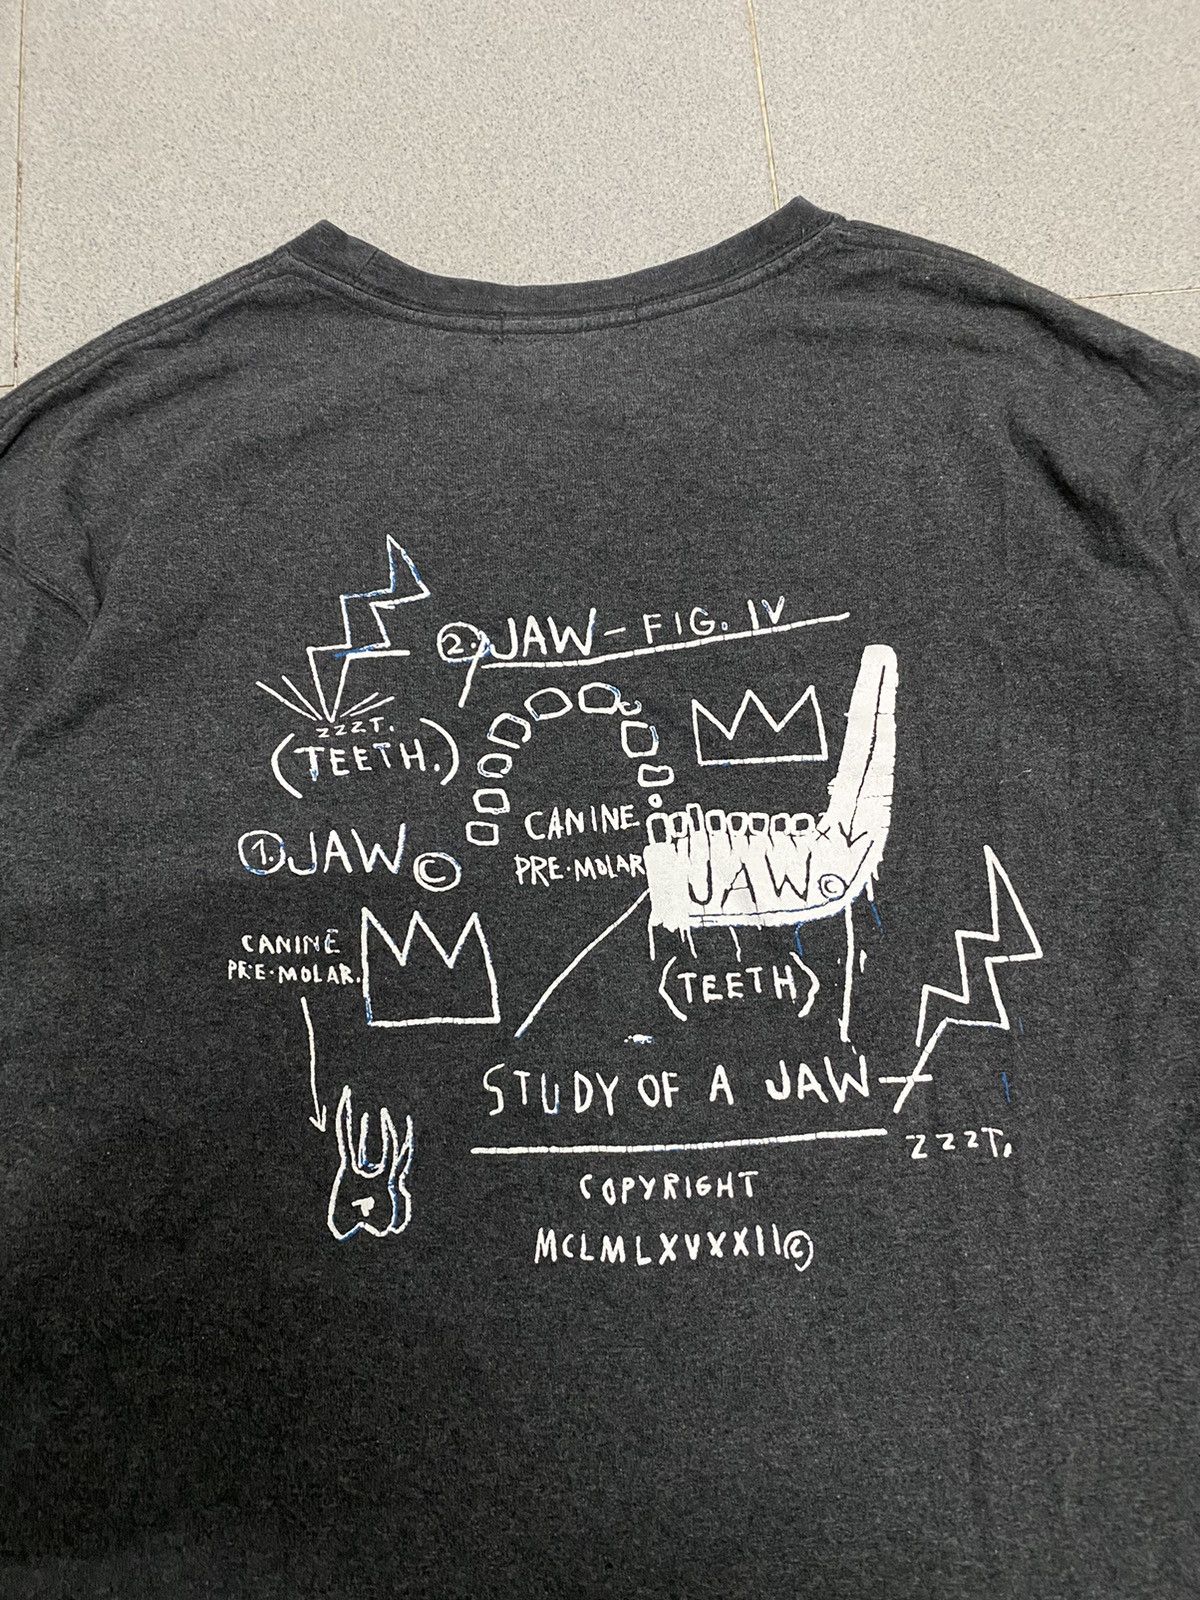 2. JAW – FIG. IV
ZZZT.
(TEETH.)
1. JAW ©
CANINE
PRE·MOLAR
JAW©
CANINE
PRE·MOLAR.
(TEETH)
STUDY OF A JAW—
ZZZT.
COPYRIGHT
MCLMLXVXXII©